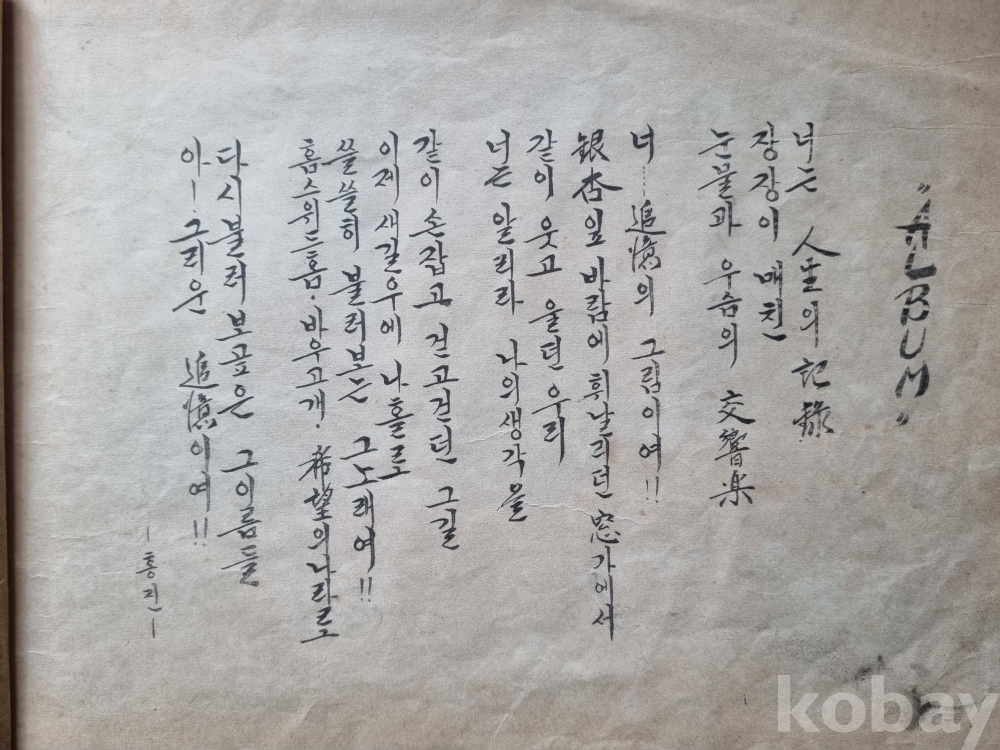 "ALBUM"
너는 人生의 記錄
장장이 매친
눈물과 우슴의 交響楽
너 … 追憶의 그림이여!!
銀杏잎 바람에 휘날리던 窓가에서
같이 웃고 울던 우리
너는 알리라 나의생각을
같이 손잡고 걷고걷던 그길
이제 새길우에 나홀로
쓸쓸히 불러보는 그노래여!!
홈스위트홈·바우고개·希望의나라로
다시불러보고픈 그이름들
아– 그리운 追憶이여!!
–홍진–
kobay